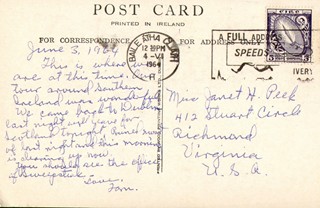 POST CARD
PRINTED IN IRELAND
FOR CORRESPONDENCE
FOR ADDRESS ONLY
BAILE ÁTHA CLIATH
12 30PM
4-VI
1964
A FULL ADD
SPEEDS
IVERY
EIRE
June 3, 1964
This is where we
are at this time. Our
tour around Southern
Ireland was wonderful.
We came back to Dublin
last night and leave for
Scotland tonight. Rained most
of last night and this morning
is clearing up now.
You should see the office
of Sweepstake.
Love,
Fam.
Miss Janet H. Peek
412 Stuart Circle
Richmond
Virginia
U.S.A.